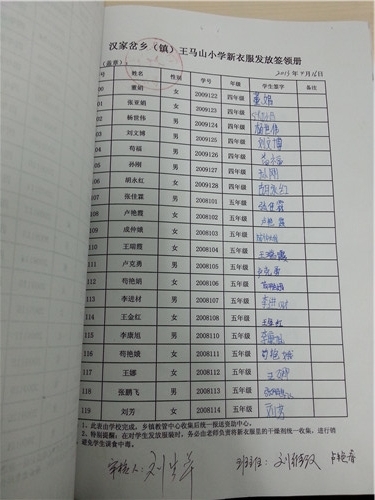 汉家岔乡（镇）王马山小学新衣服发放签领册
（盖章）
号 姓名 性别 学号 年级 学生签字 备注
00 董娟 女 2009122 四年级 董娟
101 张亚娟 女 2009123 四年级
102 杨世伟 男 2009124 四年级 杨世伟
103 刘文博 男 2009125 四年级 刘文博
104 苟福 男 2009126 四年级
105 孙刚 男 2009127 四年级 孙刚
106 胡永红 女 2009128 四年级 胡永红
107 张佳霖 男 2008101 五年级 张佳霖
108 卢艳霞 女 2008102 五年级 卢艳霞
109 成仲娥 女 2008103 五年级
110 王瑞霞 女 2008104 五年级 王瑞霞
111 卢克勇 男 2008105 五年级 卢克勇
112 苟艳娟 女 2008106 五年级
113 李进材 男 2008107 五年级
114 王金红 女 2008108 五年级
115 李康旭 男 2008109 五年级
116 苟艳娥 女 2008110 五年级 苟艳娥
117 王娜 女 2008111 五年级 王娜
118 张鹏飞 男 2008113 五年级
119 刘芳 女 2008114 五年级 刘芳
1、此表由学校完成，乡镇教管中心收集后统一报送资助中心。
2、特别提醒：在对学生发放服装时，务必由老师负责将新衣服里的干燥剂统一收集，进行销
避免学生误食中毒。
审核人：刘 班主任：刘